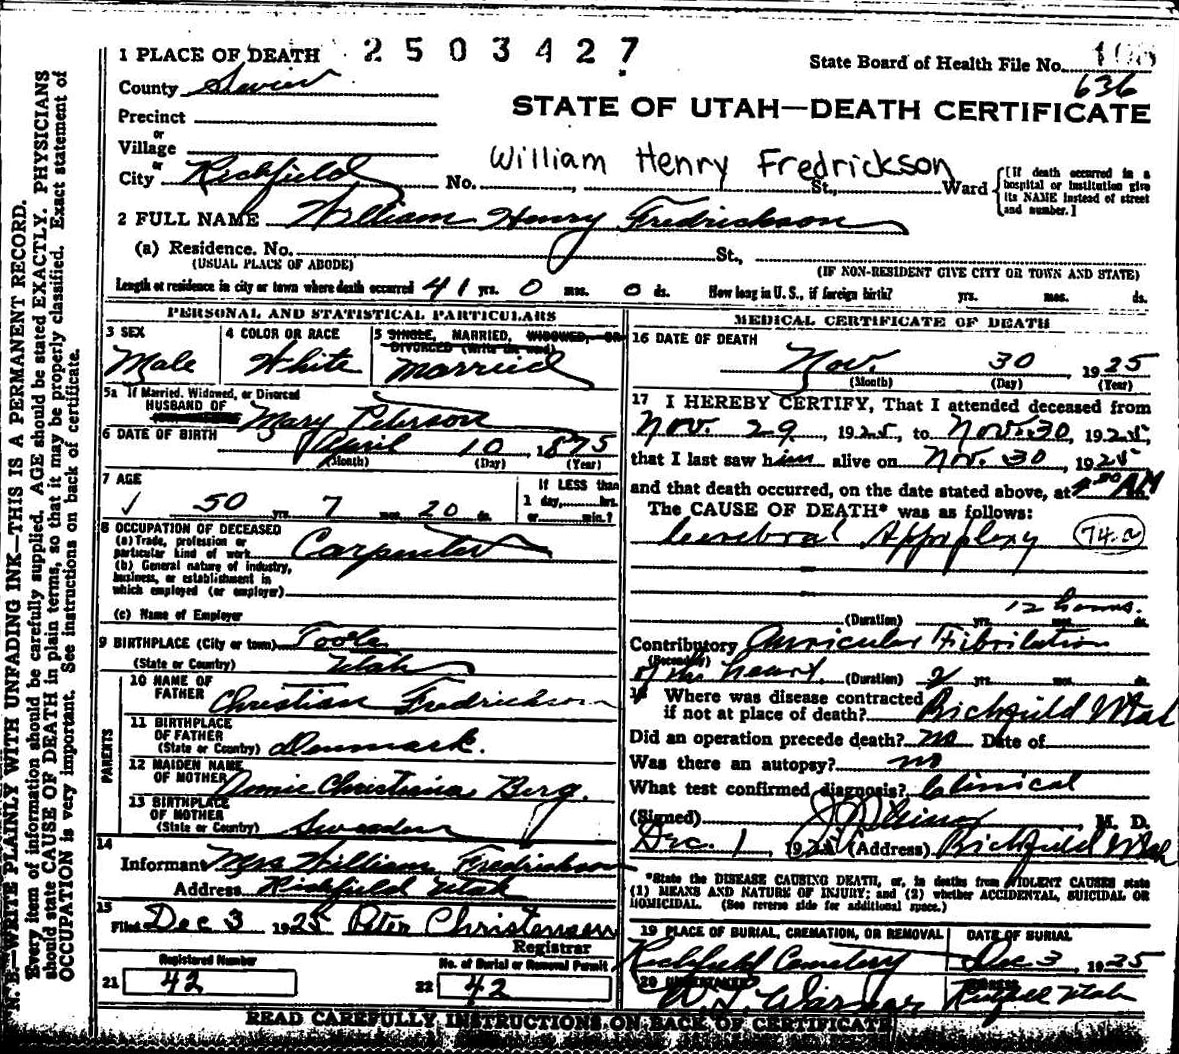 1 PLACE OF DEATH 2503427
State Board of Health File No.
County Sevier 636
STATE OF UTAH—DEATH CERTIFICATE
Precinct
or
Village
or
William Henry Fredrickson
City Richfield No. St., Ward
[If death occurred in a hospital or institution give its NAME instead of street and number.]
2 FULL NAME William Henry Fredrickson
(a) Residence. No. St.,
(USUAL PLACE OF ABODE) (IF NON-RESIDENT GIVE CITY OR TOWN AND STATE)
Length of residence in city or town where death occurred 41 yrs. 0 mos. 0 ds. How long in U.S., if foreign birth? yrs. mos. ds.
PERSONAL AND STATISTICAL PARTICULARS
3 SEX
Male
4 COLOR OR RACE
White
5 SINGLE, MARRIED, WIDOWED, OR
DIVORCED (Write the word)
Married
5a If Married, Widowed, or Divorced
HUSBAND OF Mary Peterson
6 DATE OF BIRTH April 10 1875
(Month) (Day) (Year)
7 AGE
50 yrs. 7 mos. 20 ds.
If LESS than
1 day, hrs.
or min.?
8 OCCUPATION OF DECEASED
(a) Trade, profession or
particular kind of work Carpenter
(b) General nature of industry,
business, or establishment in
which employed (or employer)
(c) Name of Employer
9 BIRTHPLACE (City or town) Tooele
(State or Country) Utah
PARENTS
10 NAME OF
FATHER Christian Fredrickson
11 BIRTHPLACE
OF FATHER
(State or Country) Denmark.
12 MAIDEN NAME
OF MOTHER Annie Christiana Berg.
13 BIRTHPLACE
OF MOTHER
(State or Country) Sweeden
14
Informant Mrs William Fredrickson
Address Richfield Utah
15
Filed Dec 3 1925 Peter Christensen
Registrar
Registered Number
21 42
No. of Burial or Removal Permit
22 42
MEDICAL CERTIFICATE OF DEATH
16 DATE OF DEATH
Nov. 30 1925
(Month) (Day) (Year)
17 I HEREBY CERTIFY, That I attended deceased from
Nov. 29, 1925, to Nov. 30, 1925,
that I last saw him alive on Nov. 30 1925
and that death occurred, on the date stated above, at AM
The CAUSE OF DEATH* was as follows:
Cerebral Appoplexy 74-a
12 hours.
(Duration) yrs. mos. ds.
Contributory Auricular Fibrilation
(Secondary)
of the heart. (Duration) 2 yrs. mos. ds.
18 Where was disease contracted
if not at place of death? Richfield Utah
Did an operation precede death? no Date of
Was there an autopsy? no
What test confirmed diagnosis? Clinical
(Signed) M. D.
Dec. 1, 1925 (Address) Richfield Utah
*State the DISEASE CAUSING DEATH, or, in deaths from VIOLENT CAUSES state
(1) MEANS AND NATURE OF INJURY; and (2) whether ACCIDENTAL, SUICIDAL OR
HOMICIDAL. (See reverse side for additional space.)
19 PLACE OF BURIAL, CREMATION, OR REMOVAL
Richfield Cemetery
DATE OF BURIAL
Dec. 3, 1925
20 UNDERTAKER
W. L. Warner
ADDRESS
Richfield Utah
READ CAREFULLY INSTRUCTIONS ON BACK OF CERTIFICATE
N. B.—WRITE PLAINLY WITH UNFADING INK—THIS IS A PERMANENT RECORD.
Every item of information should be carefully supplied. AGE should be stated EXACTLY. PHYSICIANS
should state CAUSE OF DEATH in plain terms, so that it may be properly classified. Exact statement of
OCCUPATION is very important. See instructions on back of certificate.